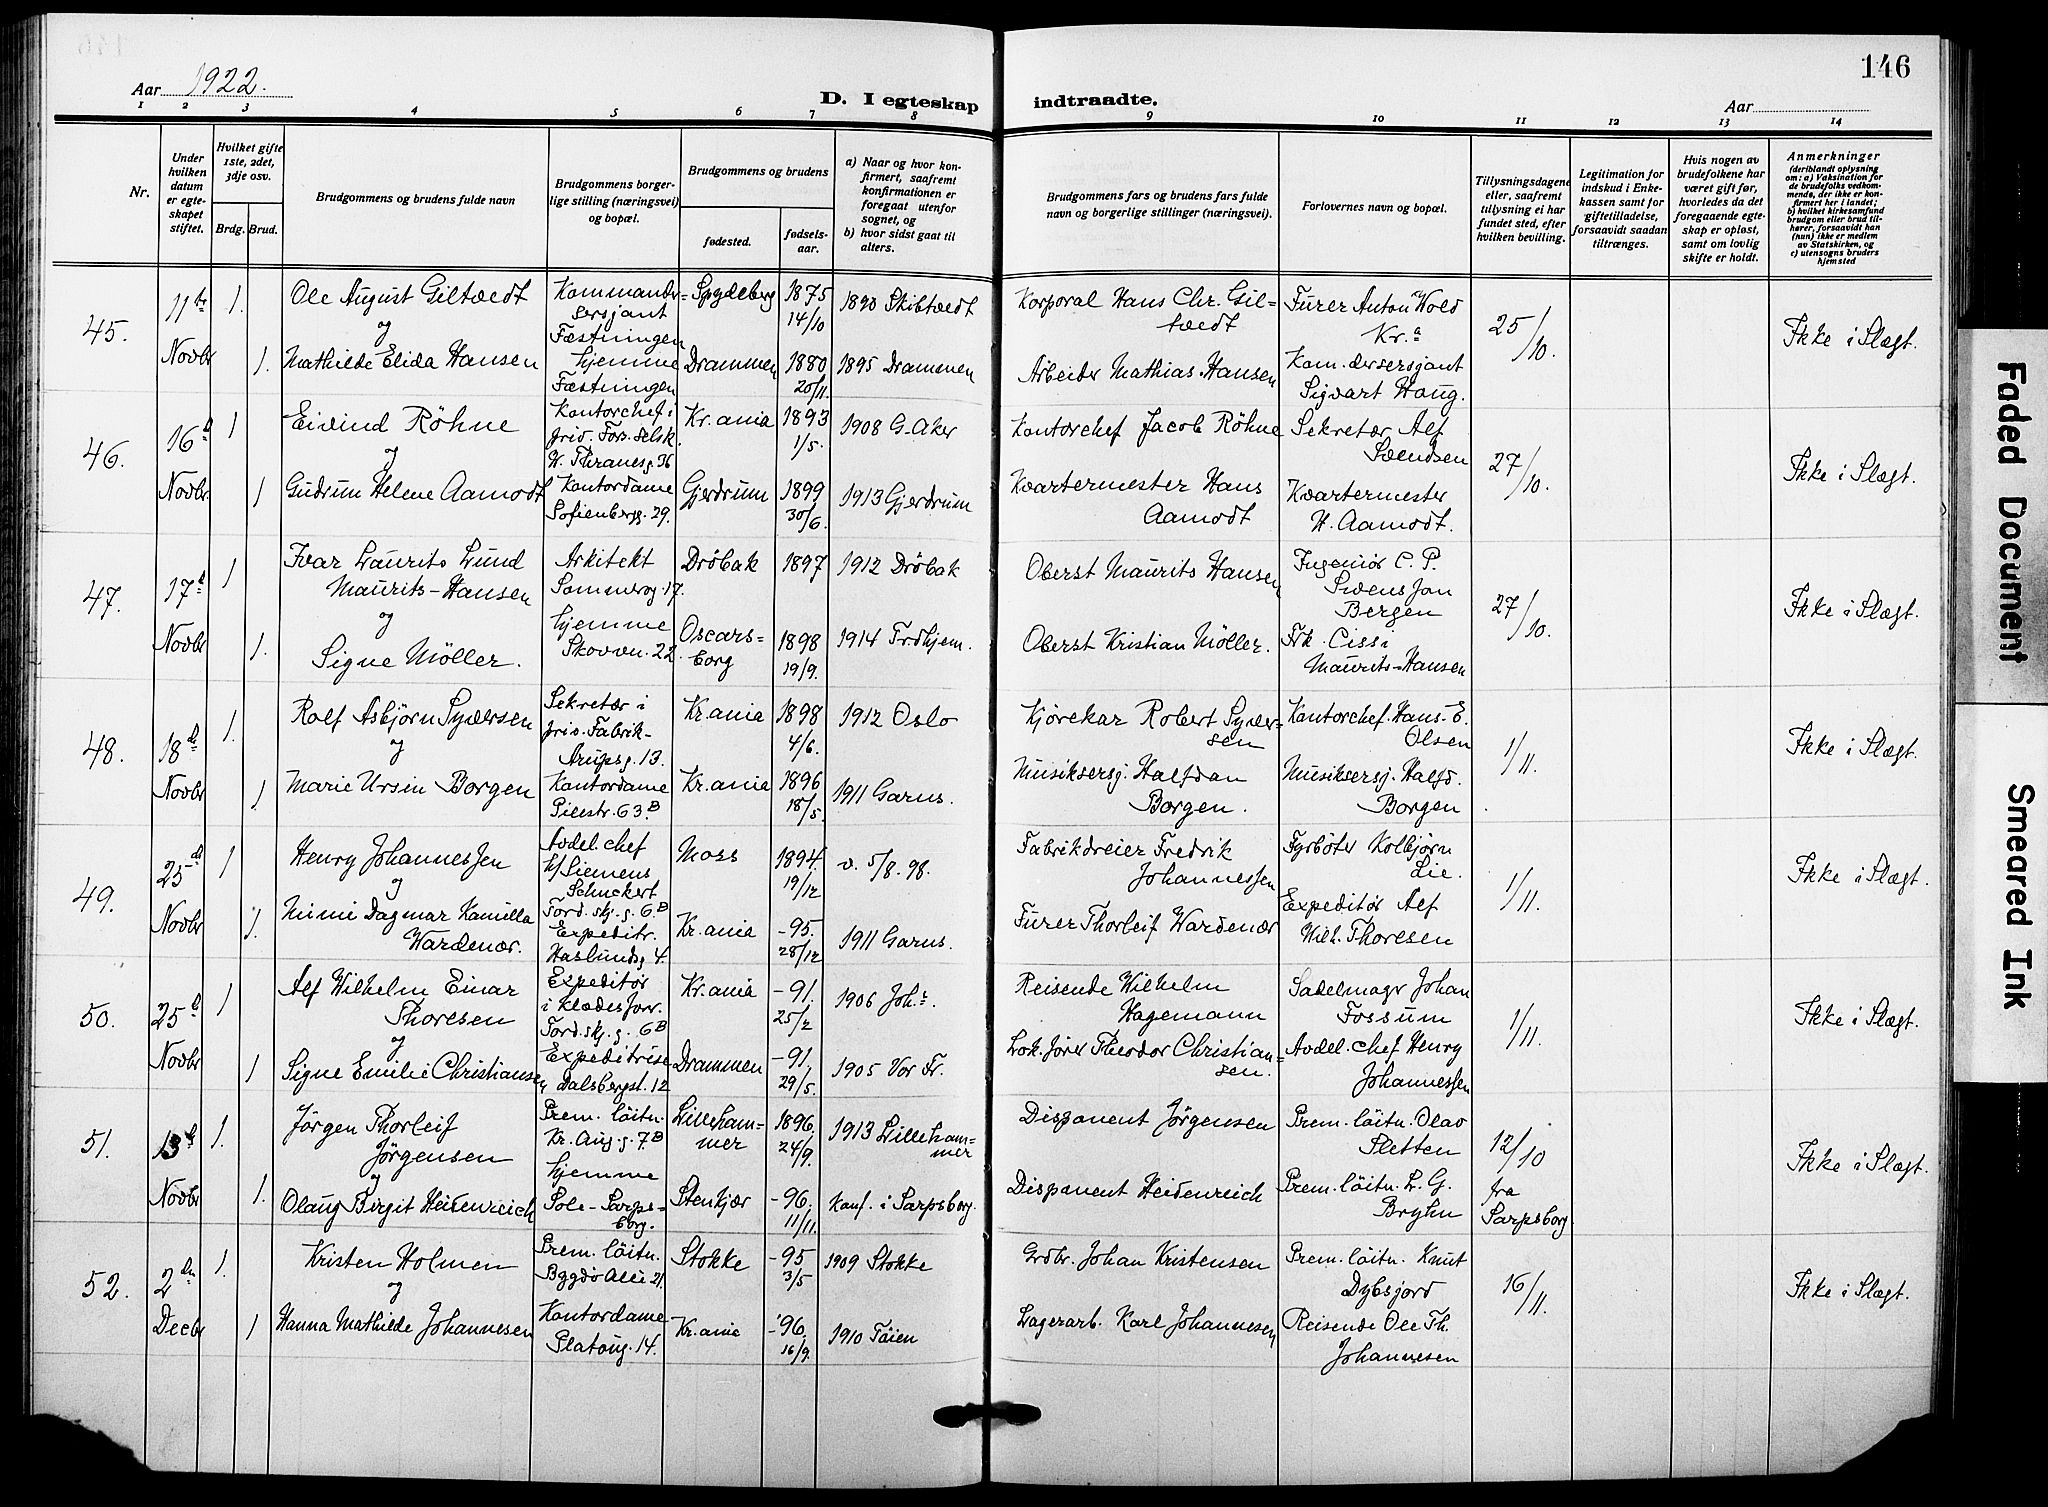 146
Aar 1922.
D. I egteskap indtraadte.
Aar
1 2 3 4 5 6 7 8 9 10 11 12 13 14
Nr.
Under hvilken datum er egteskapet stiftet.
Hvilket gifte 1ste, 2det, 3dje osv.
Brdg. Brud.
Brudgommens og brudens fulde navn
Brudgommens borgerlige stilling (næringsvei) og bopæl.
Brudgommens og brudens
fødested.
fødselsaar.
a) Naar og hvor konfirmert, saafremt konfirmationen er foregaat utenfor sognet, og
b) hvor sidst gaat til alters.
Brudgommens fars og brudens fars fulde navn og borgerlige stillinger (næringsvei).
Forlovernes navn og bopæl.
Tillysningsdagene eller, saafremt tillysning ei har fundet sted, efter hvilken bevilling.
Legitimation for indskud i Enkekassen samt for giftetilladelse, forsaavidt saadan tiltrænges.
Hvis nogen av brudefolkene har været gift før, hvorledes da det foregaaende egteskap er opløst, samt om lovlig skifte er holdt.
Anmerkninger
(deriblandt oplysning om: a) Vaksination for de brudefolks vedkommende, der ikke er konfirmert her i landet;
b) hvilket kirkesamfund brudgom eller brud tilhører, forsaavidt han (hun) ikke er medlem av Statskirken, og
c) utensogns bruders hjemsted
45.
11te Novbr
1.
Ole August Giltvedt
og
Kommandersersjant
Fæstningen
Spydeberg
1875
14/10
1890 Skibtvedt
Korporal Hans Chr. Giltvedt
Furer Anton Wold
Kr.a
25/10.
Ikke i Slægt.
1.
Mathilde Elida Hansen
hjemme
Fæstningen
Drammen
1880
20/11.
1895 Drammen
Arbeider Mathias Hansen
Kom.dersersjant
Sigvart Haug.
46.
16d Novbr.
1
Eivind Röhne
og
Kontorchef i
priv. Fors. selsk.
M. Thranesg. 36
Kr.ania
1893
1/5.
1908 G. Aker
Kontorchef Jacob Röhne
Sekretær Alf
Svendsen
27/10.
Ikke i Slægt.
1
Gudrun Helene Aamodt
Kontordame
Sofienbergg. 29.
Gjerdrum
1899
30/6.
1913 Gjerdrum
Kvartermester Hans
Aamodt
Kvartermester
H. Aamodt.
47.
17d Novbr
1
Ivar Laurits Lund
Maurits-Hansen
og
Arkitekt
Sommerog. 17.
Dröbak
1897
1912 Dröbak
Oberst Maurits Hansen
Ingeniör C. P.
Svensson
Bergen
27/10.
Ikke i Slægt.
1.
Signe Möller.
hjemme
Skovvn. 22.
Oscarsborg
1898
19/9.
1914 Trdhjem.
Oberst Kristian Möller.
Frk. Cissi
Maurits-Hansen
48.
18d Novbr
1.
Rolf Asbjörn Syversen
og
Sekretær i
priv. Fabrik-
Arupsg. 13.
Kr.ania
1898
4/6.
1912 Oslo
Kjörekar Robert Syversen
Kontorchef. Hans E.
Olsen
1/11.
Ikke i Slægt.
1
Marie Ursin Borgen
Kontordame
Pilestr. 63.B
Kr.ania
1896
18/5
1911 Garns.
Musiksersj. Halfdan
Borgen.
Musiksersj. Halfd.
Borgen
49.
25d Novbr
1
Henry Johannessen
og
Avdel. chef
h/Siemens
Schuckert
Tord.skj.g. 6.B
Moss
1894.
19/12
v. 5/8. 98.
Fabrikdreier Fredrik
Johannessen
Fyrböter Kolbjörn
Lie.
1/11.
Ikke i Slægt.
1.
Mimi Dagmar Kamilla
Wardenær.
Expeditr.
Haslundsg. 4.
Kr.ania
-95.
28/12
1911 Garns.
Furer Thorleif Wardenær
Expeditör Alf
Wilh. Thoresen
50.
25d Novbr
1
Alf Wilhelm Einar
Thoresen
og
Expeditör
i klædesforr.
Tord.skj.g. 6B
Kr.ania
-91.
25/2
1906 Joh.s.
Reisende Wilhelm
Hagemann
Sadelmagr Johan
Fossum
1/11.
Ikke i Slægt.
1
Signe Emilie Christiansen
Expeditrise
Dalsbergst. 12
Drammen
-91.
29/5.
1905 Vor Fr.
Lok.förer Theodor Christiansen.
Avdel. chef Henry
Johannessen
51.
13d Novbr
1.
Jörgen Thorleif
Jörgensen
og
Prem. löitn.
Kr. Aug. g. 7B
Lillehammer
1896
24/9.
1913 Lillehammer
Disponent Jörgensen
Prem. löitn. Olav
Sletten
12/10
fra
Sarpsborg
Ikke i Slægt.
1.
Olaug Birgit Heidenreich
hjemme
Sole-Sarpsborg.
Stenkjær
-96.
11/11.
Konf. i Sarpsborg.
Disponent Heidenreich
Prem. löitn. L. G.
Bryhn
52.
2den Decbr
1.
Kristen Holmen
og
Prem. löitn.
Bygdö Alle 21.
Stokke
-95
3/5
1909 Stokke
Grdbr. Johan Kristensen
Prem. löitn. Knut
Dybsjord
16/11.
Ikke i Slægt.
1
Hanna Mathilde Johannesen
Kontordame
Platoug. 14.
Kr.ania
-96.
16/9.
1910 Töien
Lagerarb. Karl Johannesen
Reisende Ole Th.
Johannesen
Faded Document
Smeared Ink